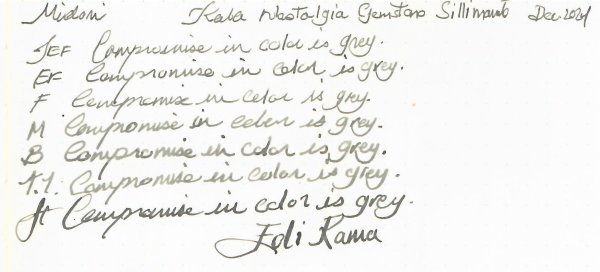 Midori Kala Nostalgia Gemstone Sillimanite Dec. 2024
JEF Compromise in color is grey.
EF Compromise in color is grey.
F Compromise in color is grey.
M Compromise in color is grey.
B Compromise in color is grey.
1.1. Compromise in color is grey.
ft Compromise in color is grey.
Edi Rama